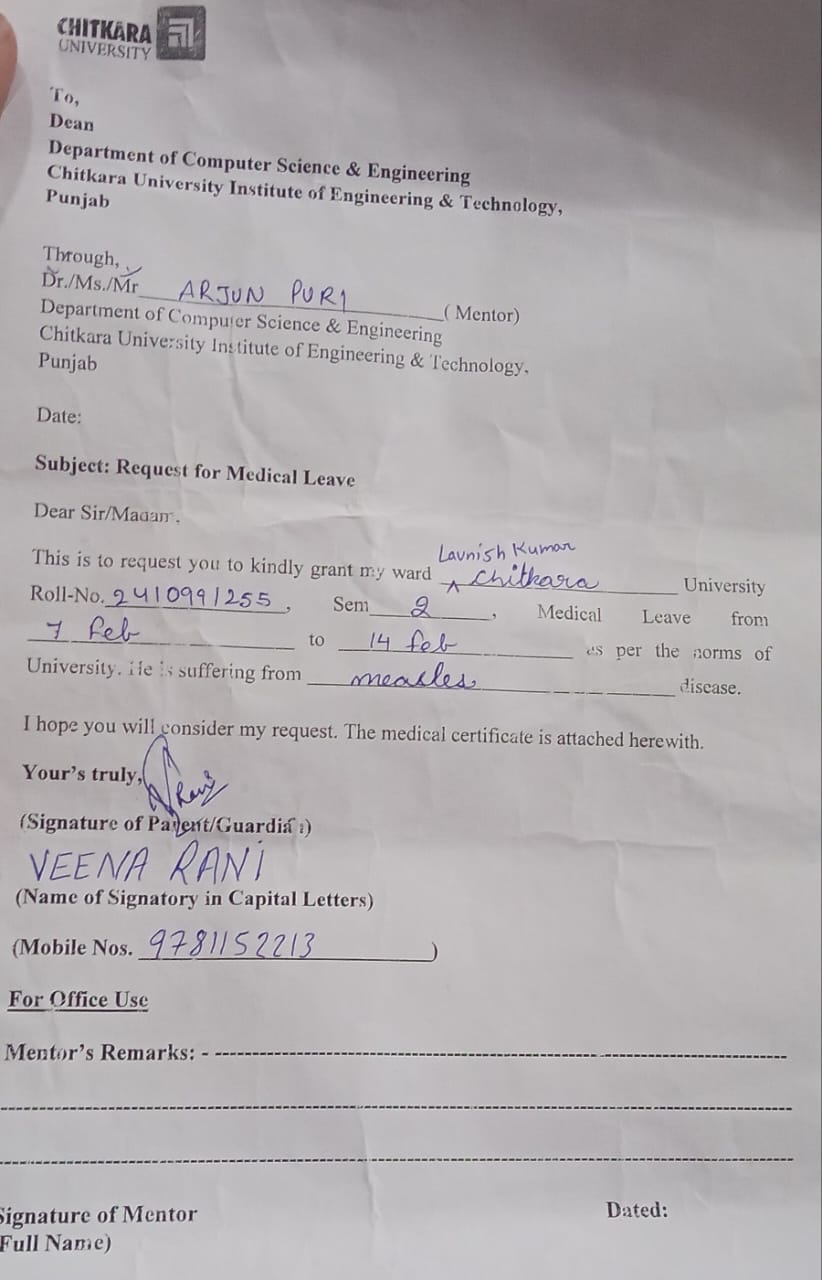 CHITKĀRA
UNIVERSITY
To,
Dean
Department of Computer Science & Engineering
Chitkara University Institute of Engineering & Technology,
Punjab
Through,
Dr./Ms./Mr ARJUN PURI ( Mentor)
Department of Computer Science & Engineering
Chitkara University Institute of Engineering & Technology,
Punjab
Date:
Subject: Request for Medical Leave
Dear Sir/Madam,
Lavnish Kumar
This is to request you to kindly grant my ward Chitkara University
Roll-No. 2410991255, Sem 2, Medical Leave from
7 feb to 14 feb as per the norms of
University. He is suffering from measles disease.
I hope you will consider my request. The medical certificate is attached herewith.
Your's truly,
Rani
(Signature of Parent/Guardian)
VEENA RANI
(Name of Signatory in Capital Letters)
(Mobile Nos. 9781152213)
For Office Use
Mentor's Remarks: -
Signature of Mentor Dated:
Full Name)